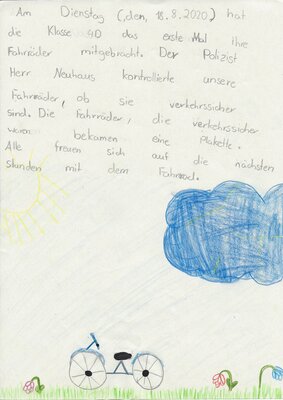 Am Dienstag (,den, 18.8.2020) hat
die Klasse 4D das erste Mal ihre
Fahrräder mitgebracht. Der Polizist
Herr Neuhaus kontrollierte unsere
Fahrräder, ob sie verkehrssicher
sind. Die Fahrräder, die verkehrssicher
waren bekamen eine Plakette.
Alle freuen sich auf die nächsten
Stunden mit dem Fahrrad.